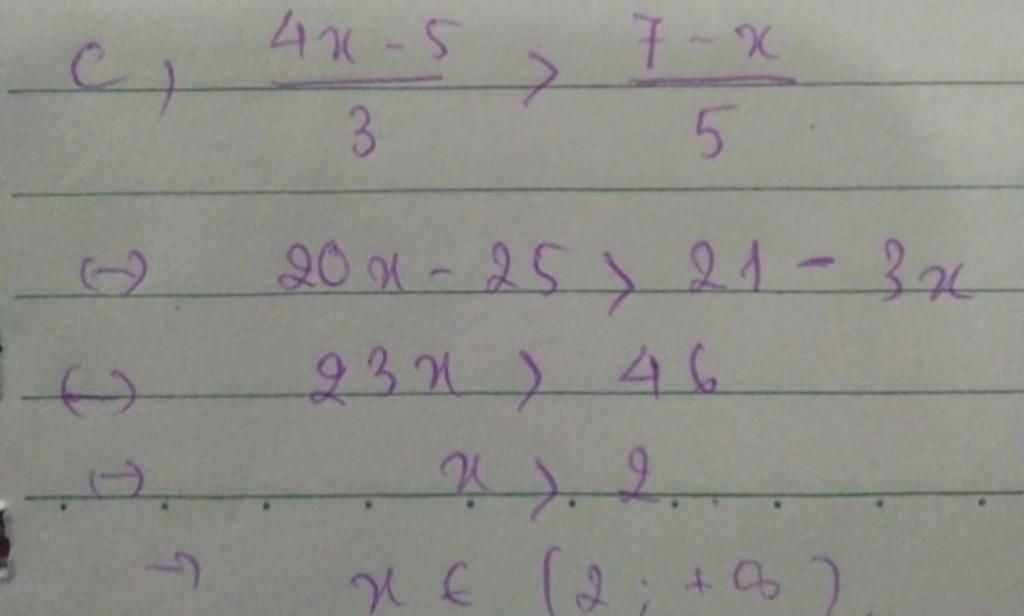 c) (4x - 5)/3 > (7 - x)/5
↔ 20x - 25 > 21 - 3x
↔ 23x > 46
↔ x > 2
→ x ∈ (2; +∞)